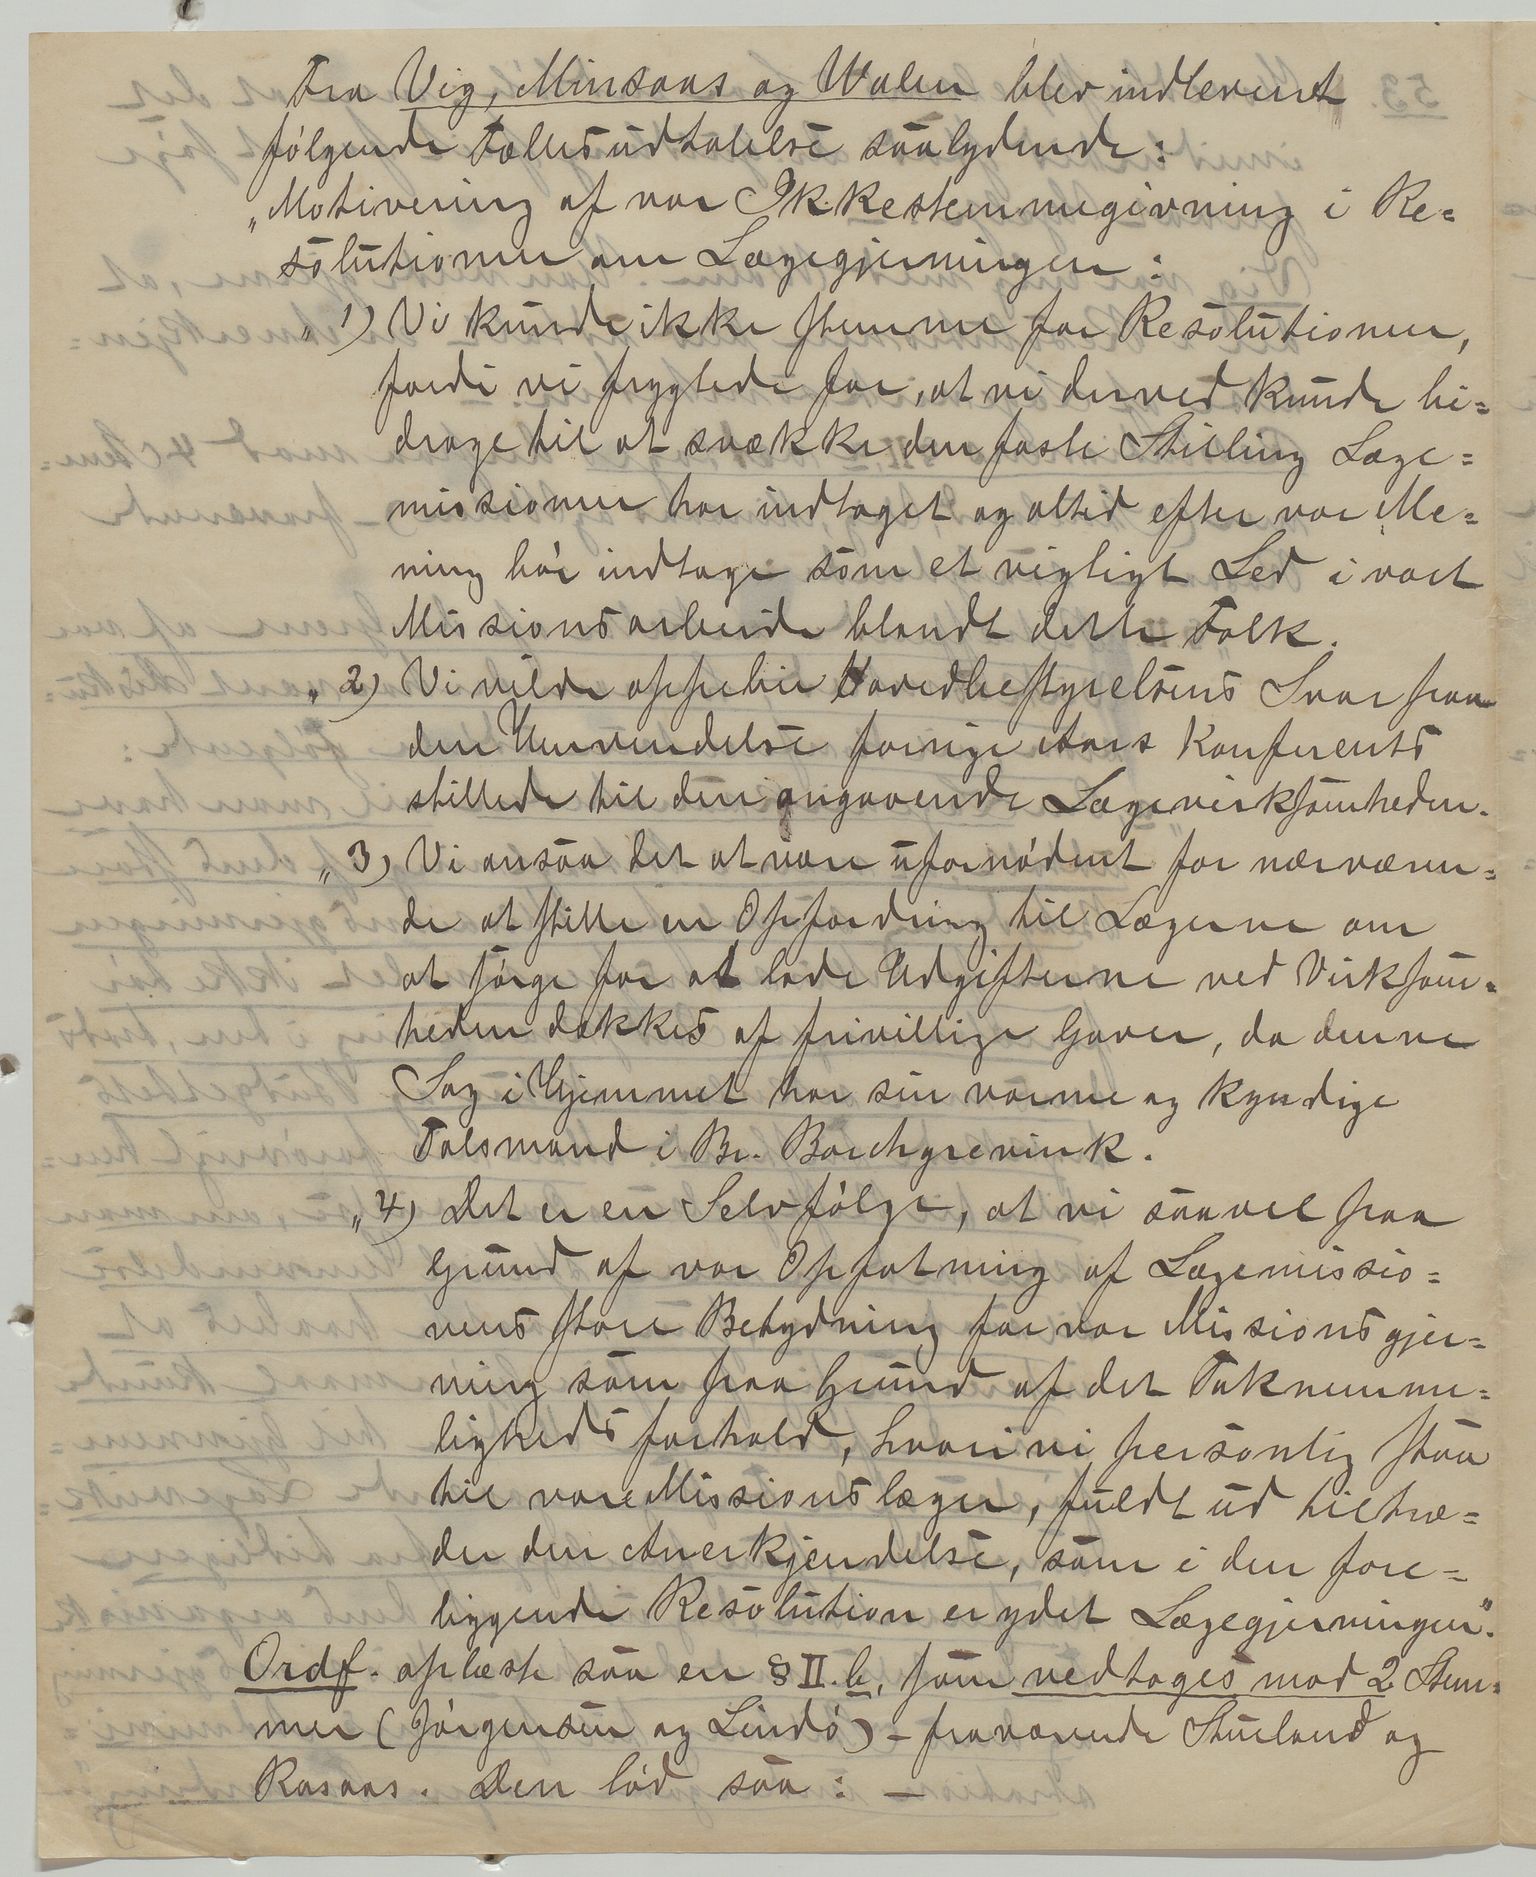 Fra Vig, Minsaas og Walen blev indleveret
følgende Fællesudtalelse saalydende:
„Motivering af vor Ikkestemmegivning i Re=
solutionen om Lægegjerningen:
„1) Vi kunde ikke stemme for Resolutionen,
fordi vi frygtede for, at vi derved kunde bi=
drage til at svække den faste Stilling Læge=
missionen har indtaget og altid efter vor Me=
ning bør indtage som et vigtigt Led i vort
Missionsarbeide blandt dette Folk.
„2) Vi vilde oppebie Hovedbestyrelsens Svar paa
den Henvendelse forrige Aars Konferents
stillede til den angaaende Lægevirksomheden.
„3) Vi ansaa det at være ufornødent for nærværen=
de at stille en Opfordring til Lægerne om
at sørge for at lade Udgifterne ved Virksom=
heden dækkes af frivillige Gaver, da denne
Sag i Hjemmet har sin varme og kyndige
Talsmand i Br. Borchgrevink.
„4) Det er en Selvfølge, at vi saavel paa
Grund af vor Opfatning af Lægemissio=
nens store Betydning for vor Missionsgjer=
ning som paa Grund af det Taknemme=
lighedsforhold, hvori vi personlig staa
til vore Missionslæger, fuldt ud tiltræ=
der den Anerkjendelse, som i den fore=
liggende Resolution er ydet Lægegjerningen".
Ordf. oplæste saa en § II. b, som vedtoges mod 2 Stem=
mer (Jørgensen og Lindø) – fraværende Stueland og
Rosaas. Den lød saa: –